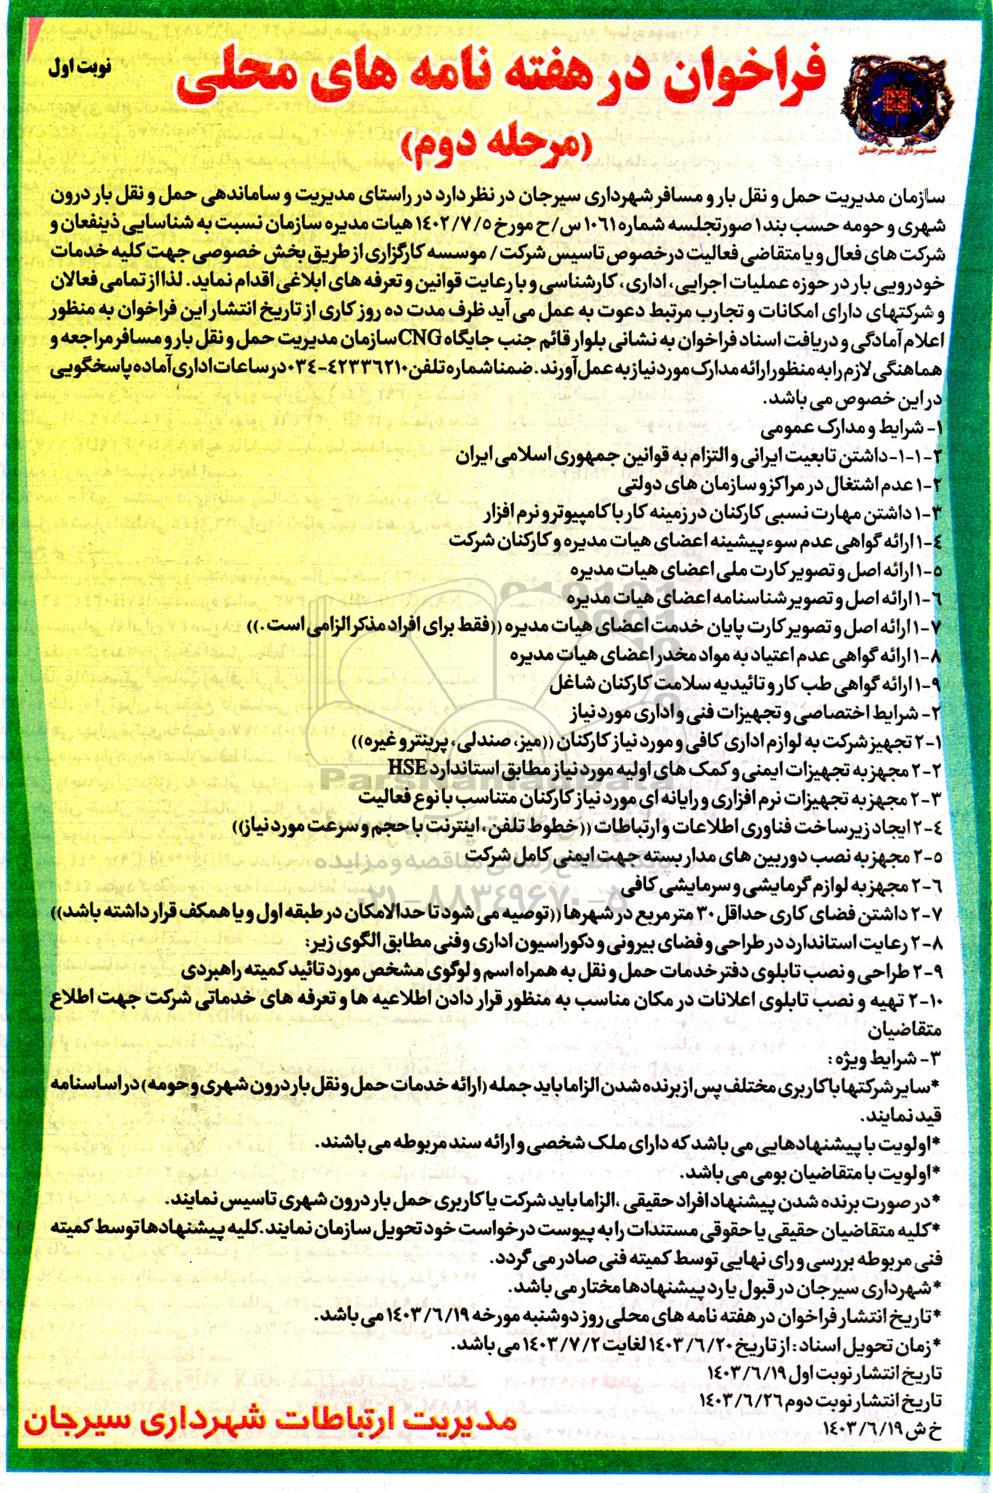 فراخوان در هفته نامه های محلی
نوبت اول
(مرحله دوم)
شهرداری سیرجان
سازمان مدیریت حمل و نقل بار و مسافر شهرداری سیرجان در نظر دارد در راستای مدیریت و ساماندهی حمل و نقل بار درون
شهری و حومه حسب بند۱ صورتجلسه شماره ۱۰۶۱ س/ح مورخ ۱۴۰۲/۷/۵ هیات مدیره سازمان نسبت به شناسایی ذینفعان و
شرکت های فعال و یا متقاضی فعالیت در خصوص تاسیس شرکت / موسسه کارگزاری از طریق بخش خصوصی جهت کلیه خدمات
خودرویی بار در حوزه عملیات اجرایی، اداری، کارشناسی و با رعایت قوانین و تعرفه های ابلاغی اقدام نماید. لذا از تمامی فعالان
و شرکتهای دارای امکانات و تجارب مرتبط دعوت به عمل می آید ظرف مدت ده روز کاری از تاریخ انتشار این فراخوان به منظور
اعلام آمادگی و دریافت اسناد فراخوان به نشانی بلوار قائم جنب جایگاه CNG سازمان مدیریت حمل و نقل بار و مسافر مراجعه و
هماهنگی لازم را به منظور ارائه مدارک مورد نیاز به عمل آورند. ضمنا شماره تلفن ۴۲۳۳۶۲۱۰-۰۳۴ در ساعات اداری آماده پاسخگویی
در این خصوص می باشد.
۱- شرایط و مدارک عمومی
۱-۱-۲-داشتن تابعیت ایرانی و التزام به قوانین جمهوری اسلامی ایران
۱-۲ عدم اشتغال در مراکز و سازمان های دولتی
۱-۳ داشتن مهارت نسبی کارکنان در زمینه کار با کامپیوتر و نرم افزار
۱-۴ ارائه گواهی عدم سوء پیشینه اعضای هیات مدیره و کارکنان شرکت
۱-۵ ارائه اصل و تصویر کارت ملی اعضای هیات مدیره
۱-۶ ارائه اصل و تصویر شناسنامه اعضای هیات مدیره
۱-۷ ارائه اصل و تصویر کارت پایان خدمت اعضای هیات مدیره ((فقط برای افراد مذکر الزامی است.))
۱-۸ ارائه گواهی عدم اعتیاد به مواد مخدر اعضای هیات مدیره
۱-۹ ارائه گواهی طب کار و تائیدیه سلامت کارکنان شاغل
۲- شرایط اختصاصی و تجهیزات فنی و اداری مورد نیاز
۲-۱ تجهیز شرکت به لوازم اداری کافی و مورد نیاز کارکنان ((میز، صندلی، پرینتر و غیره))
۲-۲ مجهز به تجهیزات ایمنی و کمک های اولیه مورد نیاز مطابق استاندارد HSE
ParsNamadData
۲-۳ مجهز به تجهیزات نرم افزاری و رایانه ای مورد نیاز کارکنان متناسب با نوع فعالیت
۲-۴ ایجاد زیرساخت فناوری اطلاعات و ارتباطات ((خطوط تلفن، اینترنت با حجم و سرعت مورد نیاز))
۲-۵ مجهز به نصب دوربین های مدار بسته جهت ایمنی کامل شرکت
۲-۶ مجهز به لوازم گرمایشی و سرمایشی کافی
۰۲۱-۸۸۳۴۹۶۷۰-۵
۲-۷ داشتن فضای کاری حداقل ۳۰ متر مربع در شهرها ((توصیه می شود تا حدالامکان در طبقه اول و یا همکف قرار داشته باشد))
۲-۸ رعایت استاندارد در طراحی و فضای بیرونی و دکوراسیون اداری و فنی مطابق الگوی زیر:
۲-۹ طراحی و نصب تابلوی دفتر خدمات حمل و نقل به همراه اسم و لوگوی مشخص مورد تائید کمیته راهبردی
۲-۱۰ تهیه و نصب تابلوی اعلانات در مکان مناسب به منظور قرار دادن اطلاعیه ها و تعرفه های خدماتی شرکت جهت اطلاع
متقاضیان
۳- شرایط ویژه :
*سایر شرکتها با کاربری مختلف پس از برنده شدن الزاما باید جمله (ارائه خدمات حمل و نقل بار درون شهری و حومه) در اساسنامه
قید نمایند.
*اولویت با پیشنهادهایی می باشد که دارای ملک شخصی و ارائه سند مربوطه می باشند.
*اولویت با متقاضیان بومی می باشد.
*در صورت برنده شدن پیشنهاد افراد حقیقی ،الزاما باید شرکت یا کاربری حمل بار درون شهری تاسیس نمایند.
*کلیه متقاضیان حقیقی یا حقوقی مستندات را به پیوست درخواست خود تحویل سازمان نمایند.کلیه پیشنهادها توسط کمیته
فنی مربوطه بررسی و رای نهایی توسط کمیته فنی صادر می گردد.
*شهرداری سیرجان در قبول یا رد پیشنهادها مختار می باشد.
*تاریخ انتشار فراخوان در هفته نامه های محلی روز دوشنبه مورخه ۱۴۰۳/۶/۱۹ می باشد.
*زمان تحویل اسناد : از تاریخ ۱۴۰۳/۶/۲۰ لغایت ۱۴۰۳/۷/۲ می باشد.
تاریخ انتشار نوبت اول ۱۴۰۳/۶/۱۹
تاریخ انتشار نوبت دوم ۱۴۰۳/۶/۲۶
خ ش ۱۴۰۳/۶/۱۹
مدیریت ارتباطات شهرداری سیرجان